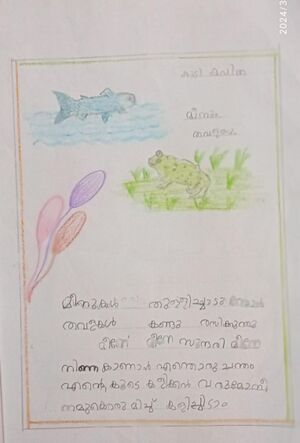 കവിത
മീനും
തവളയും
മീനുകൾ തുള്ളിച്ചാടു
തവളകൾ കണ്ടു രസിക്കുന്നു
മീനേ മീനേ സുന്ദരി മീനേ
നിന്നെ കാണാൻ എന്തൊരു ചന്തം
എന്റെ കൂടെ കളിക്കാൻ വരുമോ നീ
നമുക്കൊരുമിച്ച് കളിച്ചിടാം
2024/3